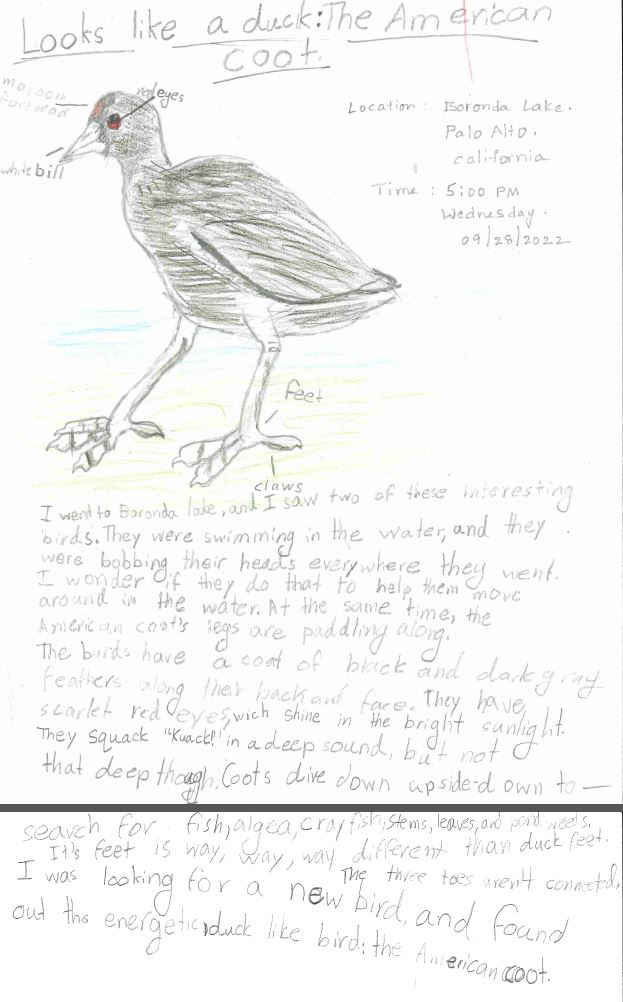 Looks like a duck: The American
coot.
maroon
forehead
red eyes
white bill
Location: Boronda Lake.
Palo Alto.
california
Time: 5:00 PM
Wednesday.
09/28/2022
feet
claws
I went to Boronda lake, and I saw two of these interesting
birds. They were swimming in the water, and they
were bobbing their heads everywhere they went.
I wonder if they do that to help them move
around in the water. At the same time, the
American coot's legs are paddling along.
The birds have a coat of black and dark gray
feathers along their back and face. They have
scarlet red eyes, wich shine in the bright sunlight.
They squack "Kuack!" in a deep sound, but not
that deep though. Coots dive down upside-down to —
search for fish, algea, crayfish, stems, leaves, and pond weeds.
It's feet is way, way, way different than duck feet.
The three toes aren't connected.
I was looking for a new bird, and found
out this energetic, duck like bird: the American coot.